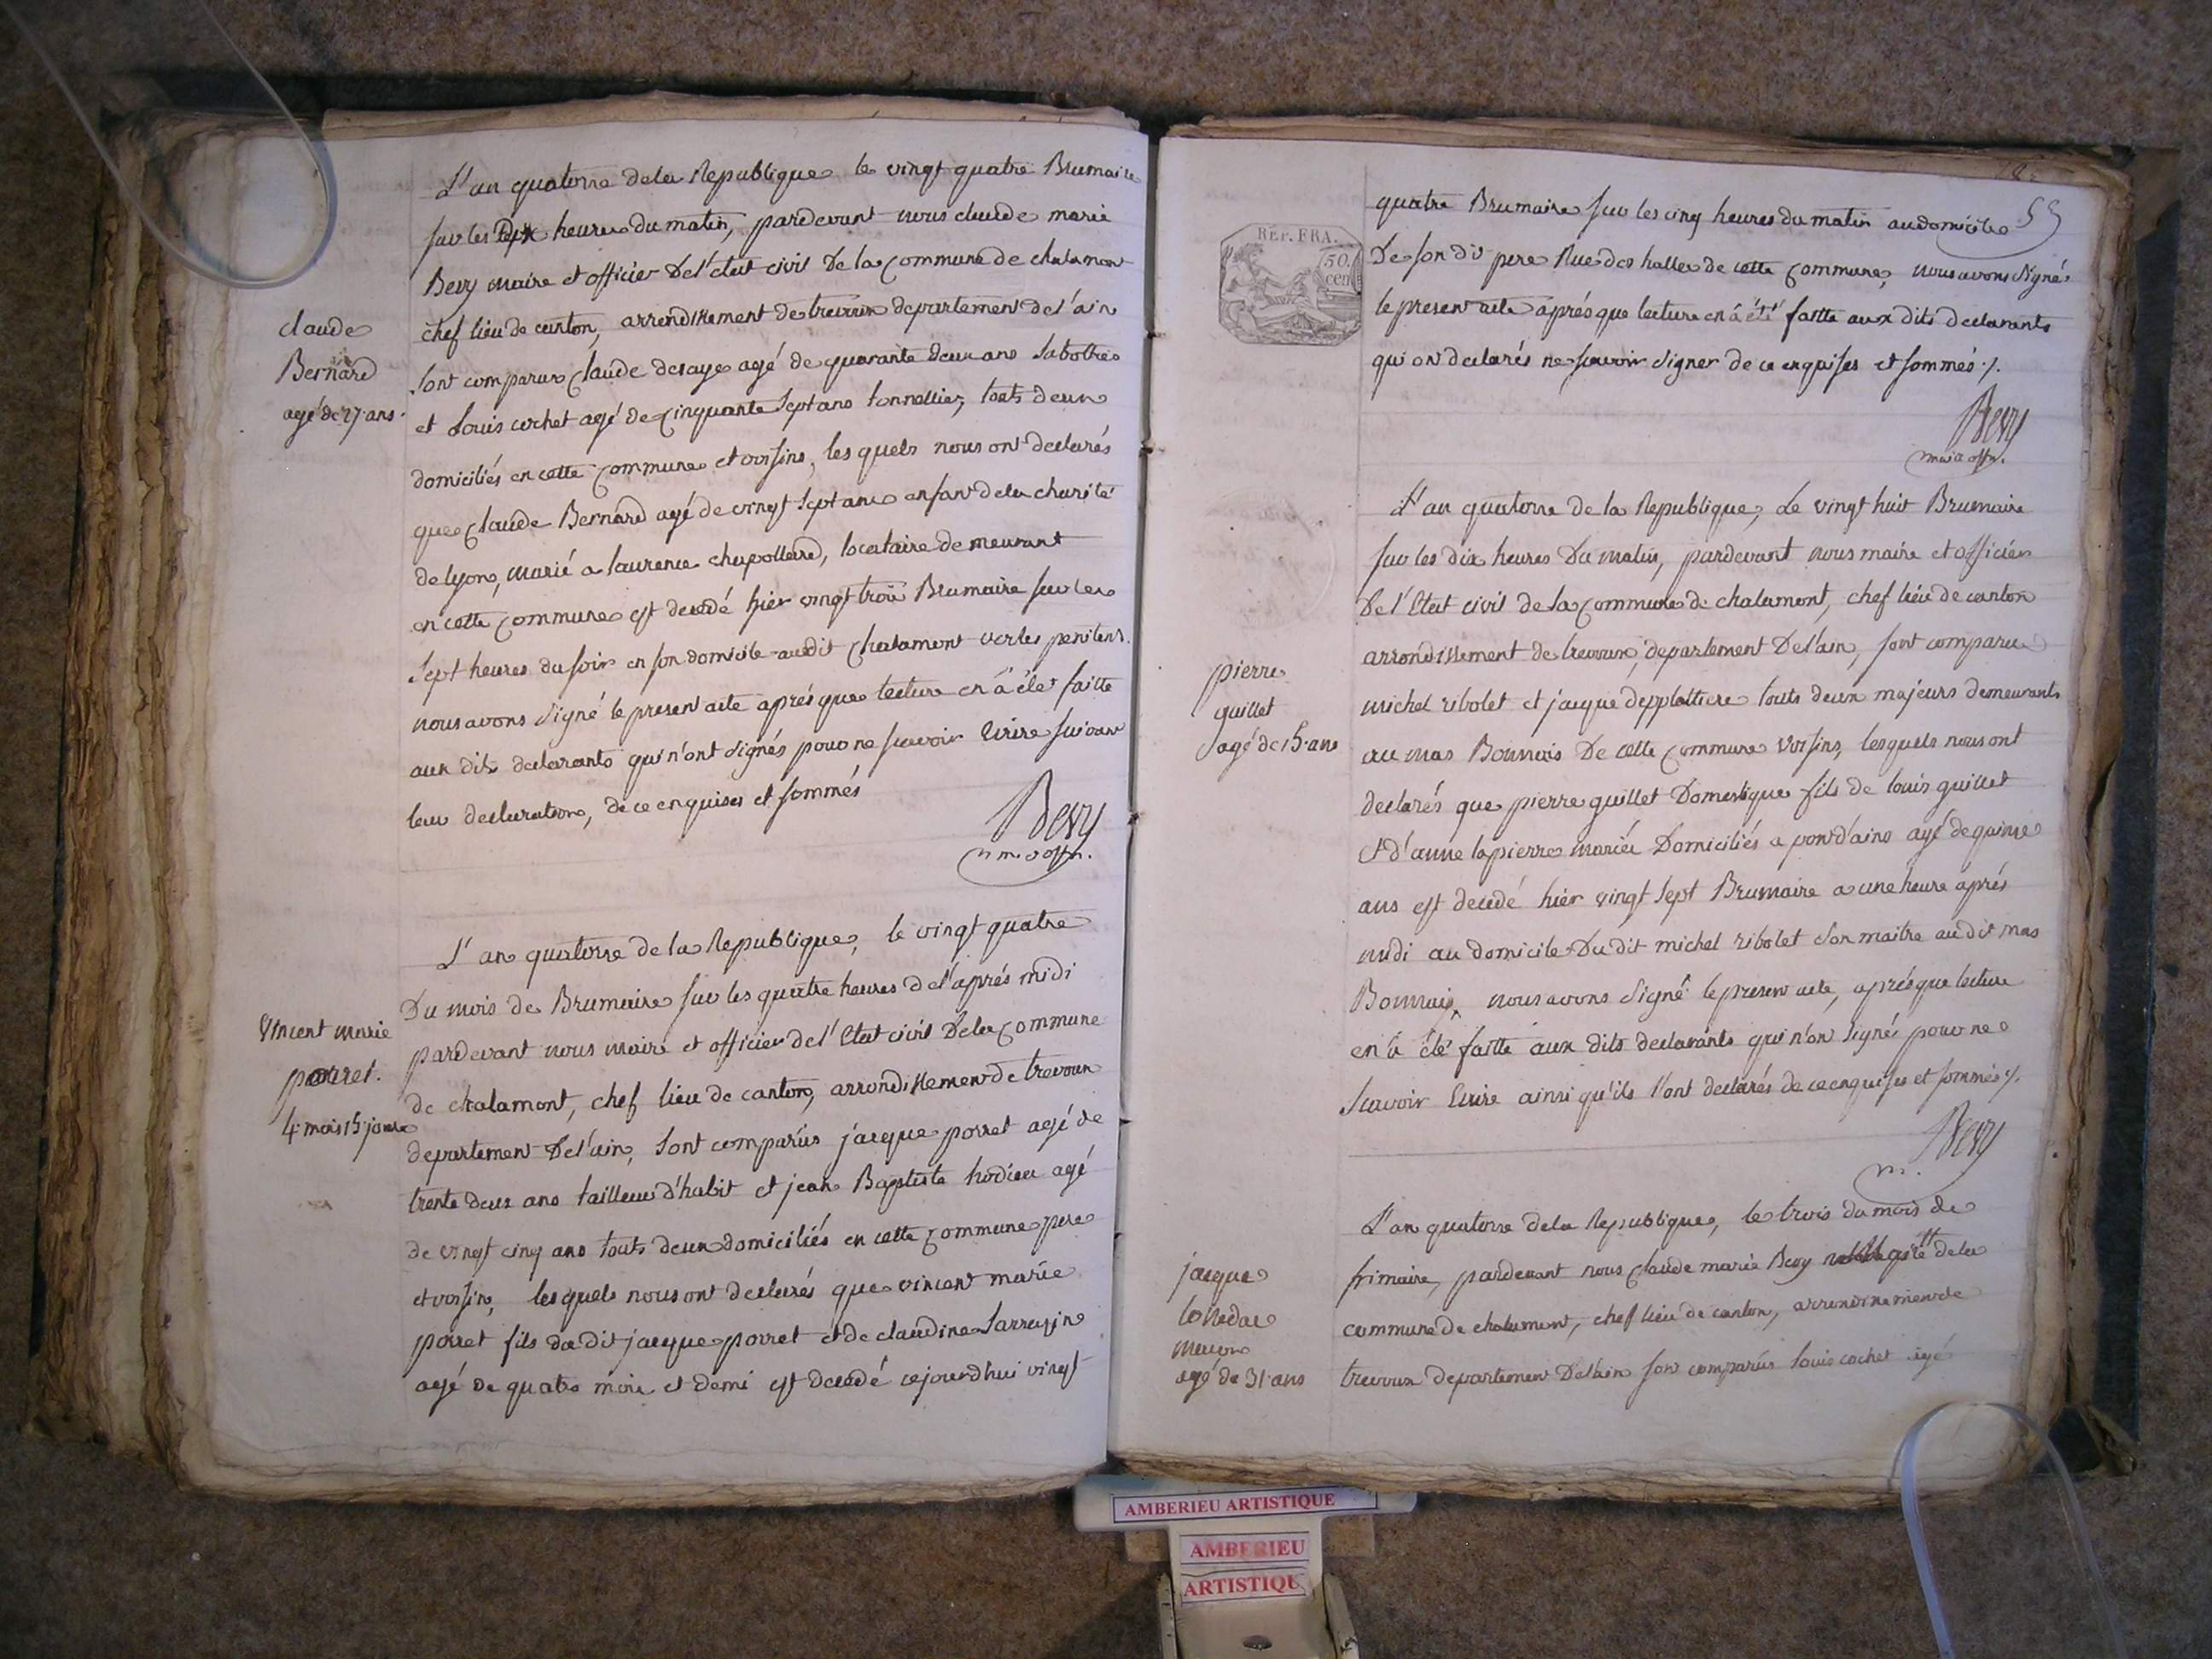 L'an quatorze de la Republique le vingt quatre Brumaire
sur les dix heures du matin, pardevant nous claude marie
Bevy maire et officier De l'etat civil De la Commune de chalamont
chef lieu de canton, arrondissement de trevoux departement de l'ain
sont comparus Claude desaye agé de quarante deux ans sabottier
et Louis cochet agé de Cinquante Sept ans tonnellier, touts deux
domiciliés en cette Commune et voisins, les quels nous ont declarés
que Claude Bernard agé de vingt Sept ans enfant de la charité
de lyon, marié a laurence chapolland, locataire demeurant
en cette Commune est decedé hier vingt trois Brumaire sur les
Sept heures du soir en son domicile audit Chalamont vers les penitens.
nous avons signé le present acte aprés que lecture en â été faitte
aux dits declarants qui n'ont signés pour ne scavoir Ecrire suivant
leur declaration, de ce enquises et sommés
Bevy
claude
Bernard
agé de 27 ans.
L'an quatorze de la Republique, le vingt quatre
Du mois de Brumaire sur les quatre heures de l'aprés midi
pardevant nous maire et officier de l'Etat civil De la Commune
de chalamont, chef lieu de canton, arrondissement de trevoux
departement De l'ain, sont comparus jacque porret agé de
trente deux ans tailleur d'habit et jean Baptiste hodieu agé
de vingt cinq ans touts deux domiciliés en cette Commune pere
et voisin, les quels nous ont declarés que vincent marie
porret fils du dit jacque porret et de claudine Sarrazin
agé de quatre mois et demi est decedé cejourd'hui vingt
Vincent marie
porret.
4. mois 15. jours
55
REP. FRA.
50.
cen
quatre Brumaire sur les cinq heures du matin au domicile
De son dit pere Rue des halles de cette Commune, nous avons signé
le present acte aprés que lecture en â été faitte aux dits declarants
qui ont declarés ne scavoir signer de ce enquises et sommés ./.
Bevy
L'an quatorze de la Republique, Le vingt huit Brumaire
sur les dix heures Du matin, pardevant nous maire et officier
De l'Etat civil de la Commune de chalamont, chef lieu de canton
arrondissement de trevoux, departement De l'ain, sont comparu
michel ribolet et jacque depplattiere touts deux majeurs demeurants
au mas Bonnais De cette Commune voisins, lesquels nous ont
declarés que pierre guillet Domestique fils de louis guillet
Et d'anne lapierre mariés Domiciliés a pont d'ain agé de quinze
ans est decedé hier vingt Sept Brumaire a une heure aprés
midi au domicile Du dit michel ribolet son maitre au dit mas
Bonnais, nous avons signé le present acte, aprés que lecture
en â été faitte aux dits declarants qui n'on signés pour ne
scavoir Ecrire ainsi qu'ils l'ont declarés de ce enquises et sommés ./.
Bevy
m.
pierre
guillet
agé de 15. ans
L'an quatorze de la Republique, le trois du mois de
frimaire, pardevant nous Claude marie Bevy de la
commune de chalamont, chef lieu de canton, arrondissement de
trevoux departement De l'ain sont comparus louis cochet agé
jacque
macon
agé de 31 ans
AMBERIEU ARTISTIQUE
AMBERIEU
ARTISTIQU